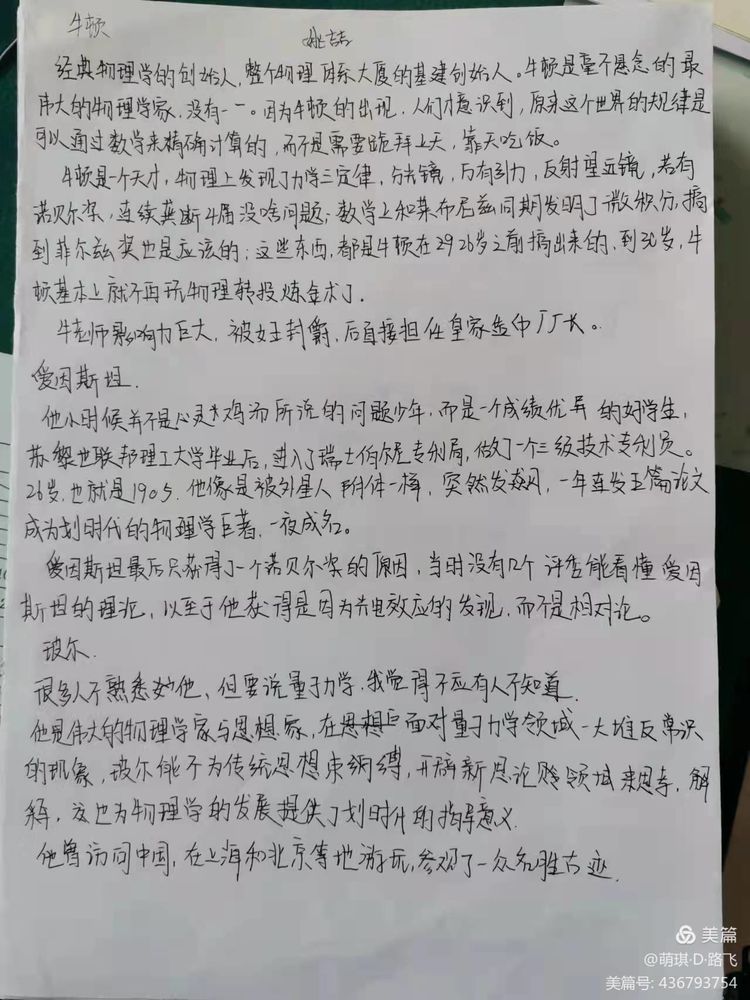 牛顿
经典物理学的创始人，整个物理体系大厦的基建创始人。牛顿是毫不悬念的最
伟大的物理学家，没有一一。因为牛顿的出现，人们才意识到，原来这个世界的规律是
可以通过数学来精确计算的，而不是需要跪拜上天，靠天吃饭。
牛顿是个天才，物理上发现了力学三定律，分光镜，万有引力，反射望远镜，若有
诺贝尔奖，连续垄断4届没啥问题；数学上和莱布尼兹同期发明了微积分，搞
到菲尔兹奖也是应该的；这些东西，都是牛顿在29 26岁之前搞出来的，到30岁，牛
顿基本上就不再玩物理转投炼金术了.
牛老师影响力巨大，被女王封爵，后直接担任皇家造币厂厂长。
爱因斯坦.
他小时候并不是心灵鸡汤所说的问题少年，而是一个成绩优异的好学生，
苏黎世联邦理工大学毕业后，进入了瑞士伯尔尼专利局，做了一个三级技术专利员。
26岁，也就是1905.他像是被外星人附体一样，突然发飙，一年连发五篇论文
成为划时代的物理学巨著，一夜成名。
爱因斯坦最后只获得了一个诺贝尔奖的原因，当时没有几个评委能看懂爱因
斯坦的理论，以至于他获得是因为光电效应的发现，而不是相对论。
玻尔.
很多人不熟悉他，但要说量子力学，我觉得不应有人不知道.
他是伟大的物理学家与思想家，在思想 面对量子力学领域一大堆反常识
的现象，玻尔能不为传统思想束缚，开辟新思论 领域来思考，解
释，这也为物理学的发展提供了划时代的指导意义.
他曾访问中国，在上海和北京等地游玩，参观了一众名胜古迹.
美篇
@萌琪·D·路飞
美篇号: 436793754